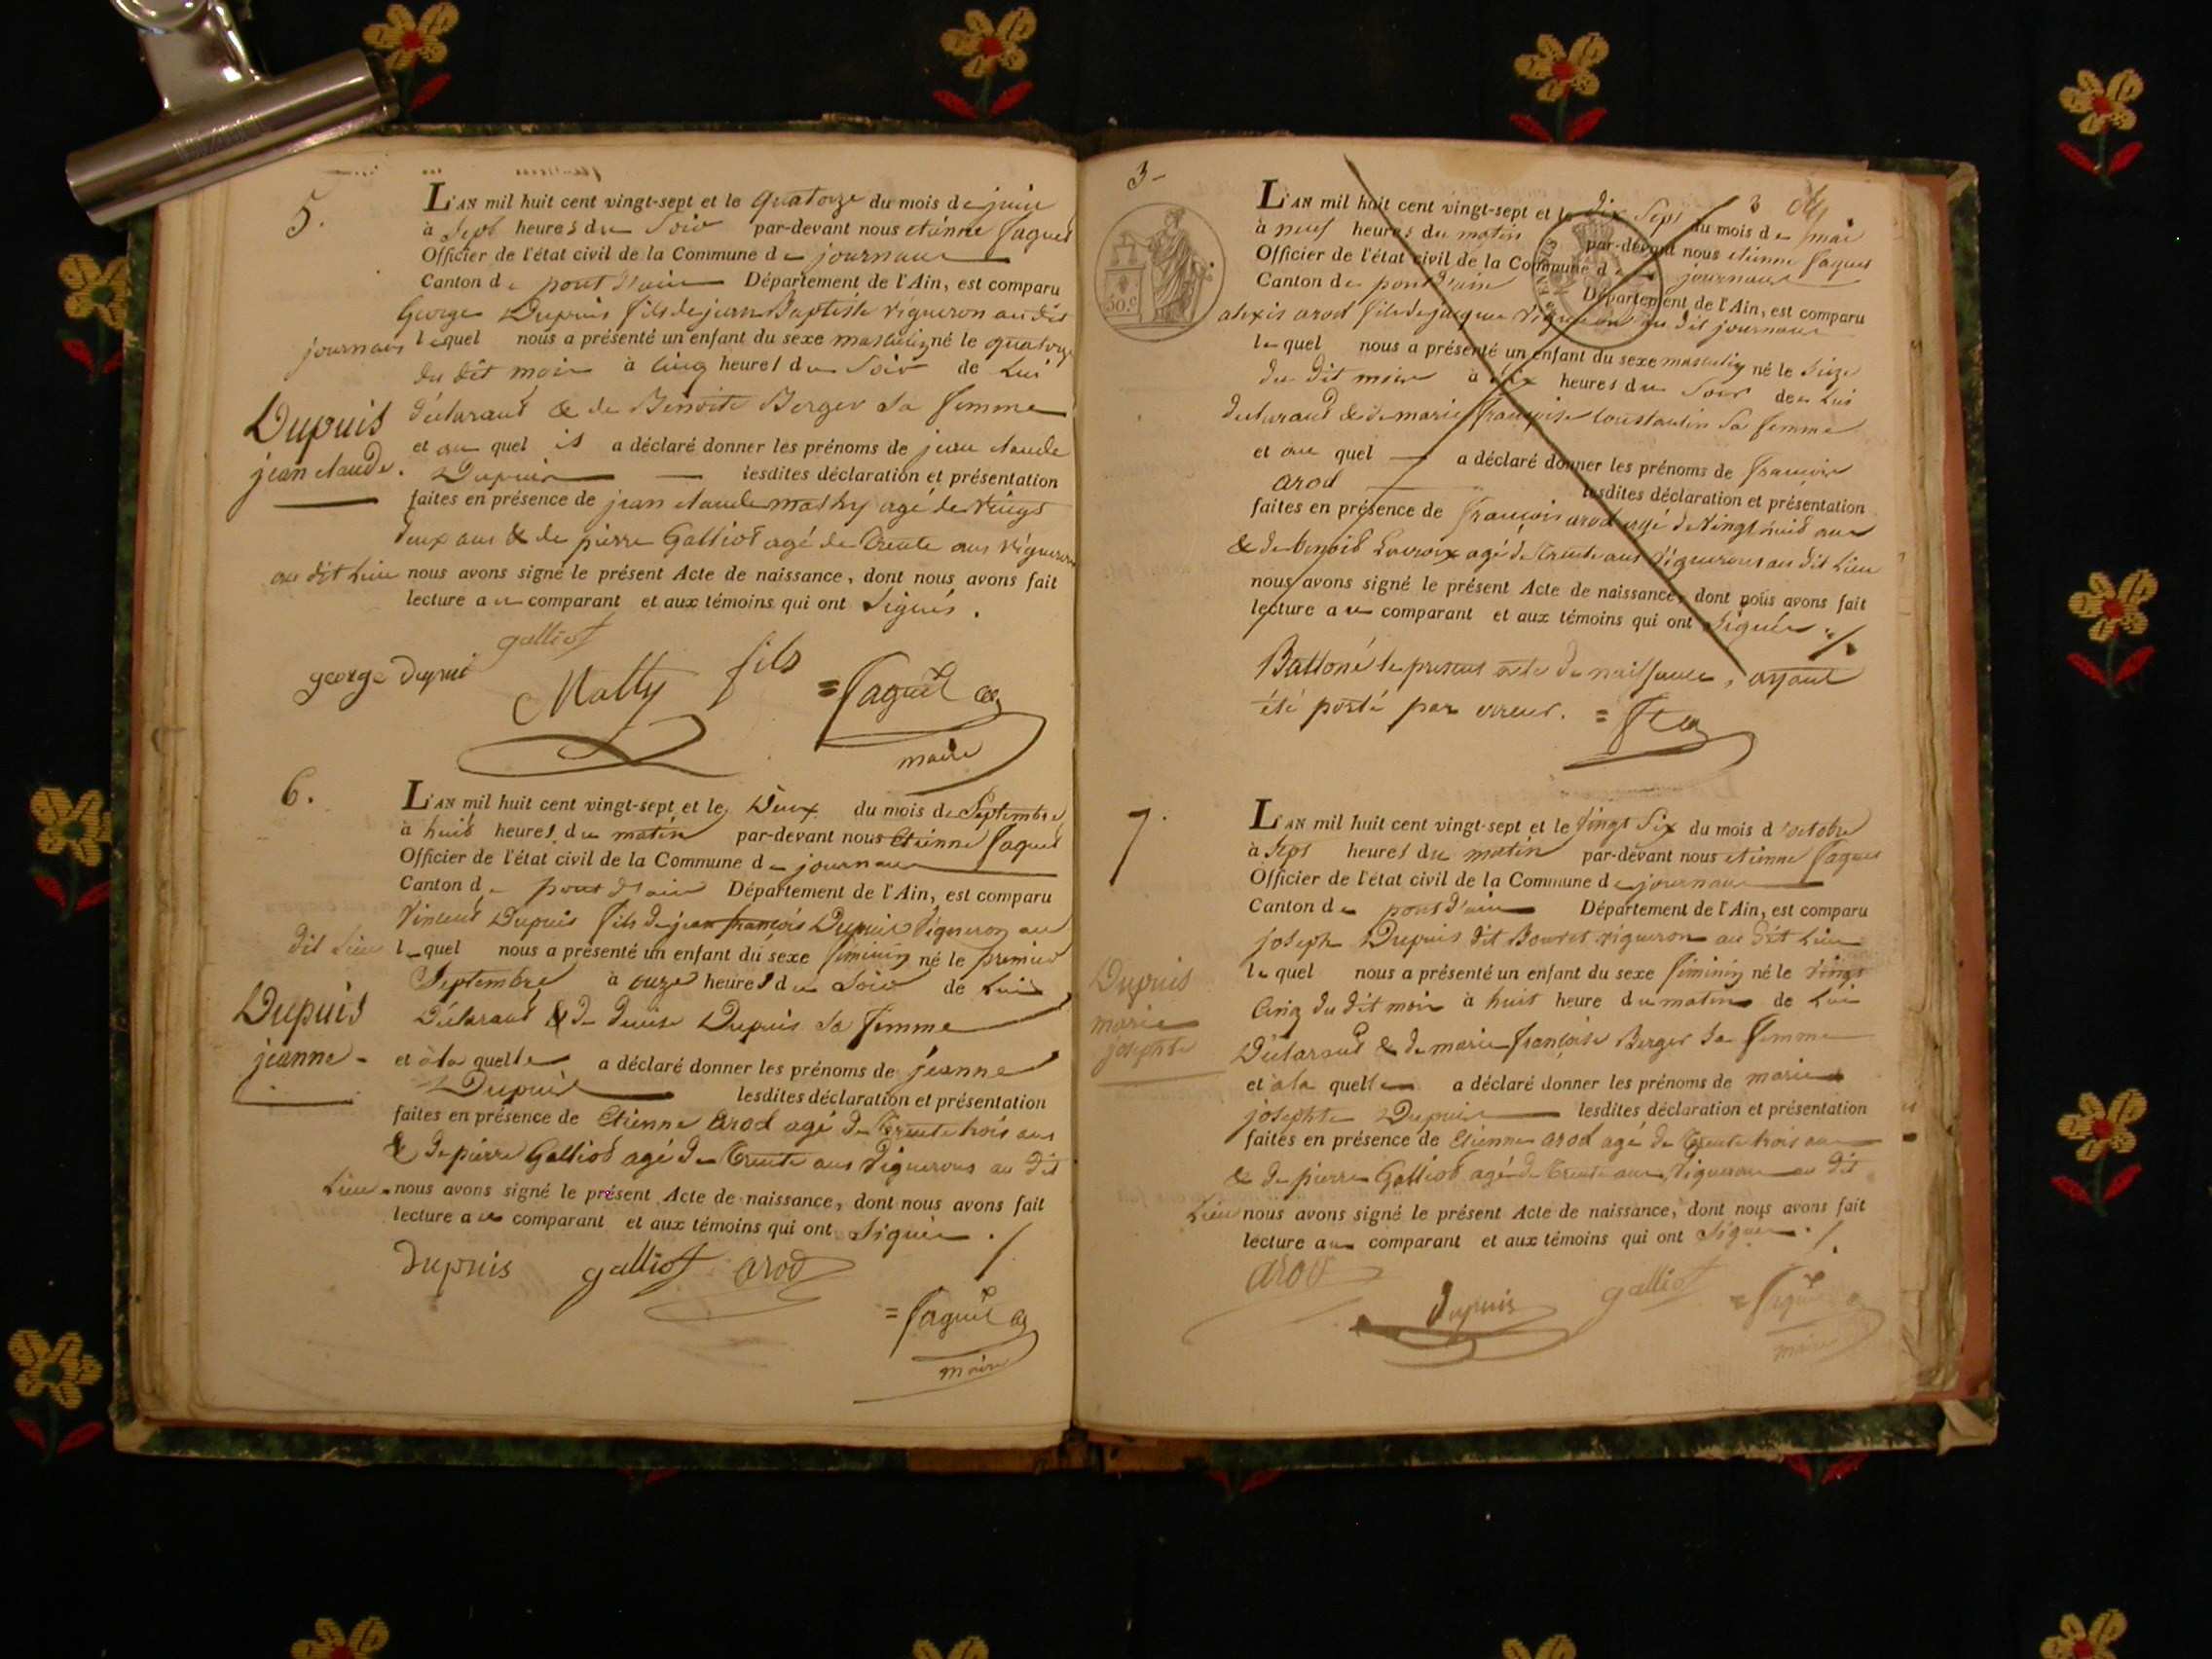 5.
L'AN mil huit cent vingt-sept et le quatorze du mois de juin
à sept heures du soir par-devant nous etienne Jaquet
Officier de l'état civil de la Commune de journans
Canton de pont d'ain Département de l'Ain, est comparu
George Dupuis fils de jean Baptiste vigneron au dit
journans lequel nous a présenté un enfant du sexe masculin né le quatorze
du dit mois à cinq heures du soir de Lui
déclarant & de Benoite Berger sa femme
Dupuis
jean claude.
et au quel il a déclaré donner les prénoms de jean claude
Dupuis lesdites déclaration et présentation
faites en présence de jean claude mathy agé de vingt
deux ans & de pierre Galliot agé de trente ans vignerons
au dit Lieu nous avons signé le présent Acte de naissance, dont nous avons fait
lecture au comparant et aux témoins qui ont signés.
galliot
george dupui
Matty fils
= Jaquet
maire
6.
L'AN mil huit cent vingt-sept et le Deux du mois de Septembre
à huit heures du matin par-devant nous Etienne Jaquet
Officier de l'état civil de la Commune de journans
Canton de pont d'ain Département de l'Ain, est comparu
Vincent Dupuis fils de jean françois Dupuis vigneron au
dit Lieu lequel nous a présenté un enfant du sexe féminin né le premier
Septembre à onze heures du soir de Lui
Déclarant & de denise Dupuis sa femme
Dupuis
jeanne
et à la quelle a déclaré donner les prénoms de jeanne
Dupuis lesdites déclaration et présentation
faites en présence de Etienne arod agé de trente trois ans
& de pierre Galliot agé de trente ans vignerons au dit
Lieu nous avons signé le présent Acte de naissance, dont nous avons fait
lecture au comparant et aux témoins qui ont signés ./
dupuis galliot arod
= Jaquet
maire
3
3
50.c
L'AN mil huit cent vingt-sept et le dix sept du mois de mai
à neuf heures du matin par-devant nous etienne Jaquet
Officier de l'état civil de la Commune de journans
Canton de pont d'ain Département de l'Ain, est comparu
alexis arod fils de jacque vigneron au dit journans
lequel nous a présenté un enfant du sexe masculin né le seize
du dit mois à six heures du soir de Lui
déclarant & de marie françoise Constantin sa femme
et au quel a déclaré donner les prénoms de françois
arod lesdites déclaration et présentation
faites en présence de françois arod agé de vingt huit ans
& de benoit Lacroix agé de trente ans vignerons au dit Lieu
nous avons signé le présent Acte de naissance, dont nous avons fait
lecture au comparant et aux témoins qui ont signés ./.
Battoné le present acte de naissance, ayant
été porté par erreur.
7.
L'AN mil huit cent vingt-sept et le vingt six du mois d'octobre
à sept heures du matin par-devant nous etienne Jaquet
Officier de l'état civil de la Commune de journans
Canton de pont d'ain Département de l'Ain, est comparu
joseph Dupuis dit Bouret vigneron au dit Lieu
lequel nous a présenté un enfant du sexe féminin né le vingt
Cinq du dit mois à huit heure du matin de Lui
Déclarant & de marie françoise Berger sa femme
Dupuis
marie
josephte
et à la quelle a déclaré donner les prénoms de marie
josephte Dupuis lesdites déclaration et présentation
faites en présence de Etienne arod agé de trente trois ans
& de pierre Galliot agé de trente ans vignerons au dit
Lieu nous avons signé le présent Acte de naissance, dont nous avons fait
lecture au comparant et aux témoins qui ont signés ./.
arod
dupuis
galliot
= Jaquet
maire